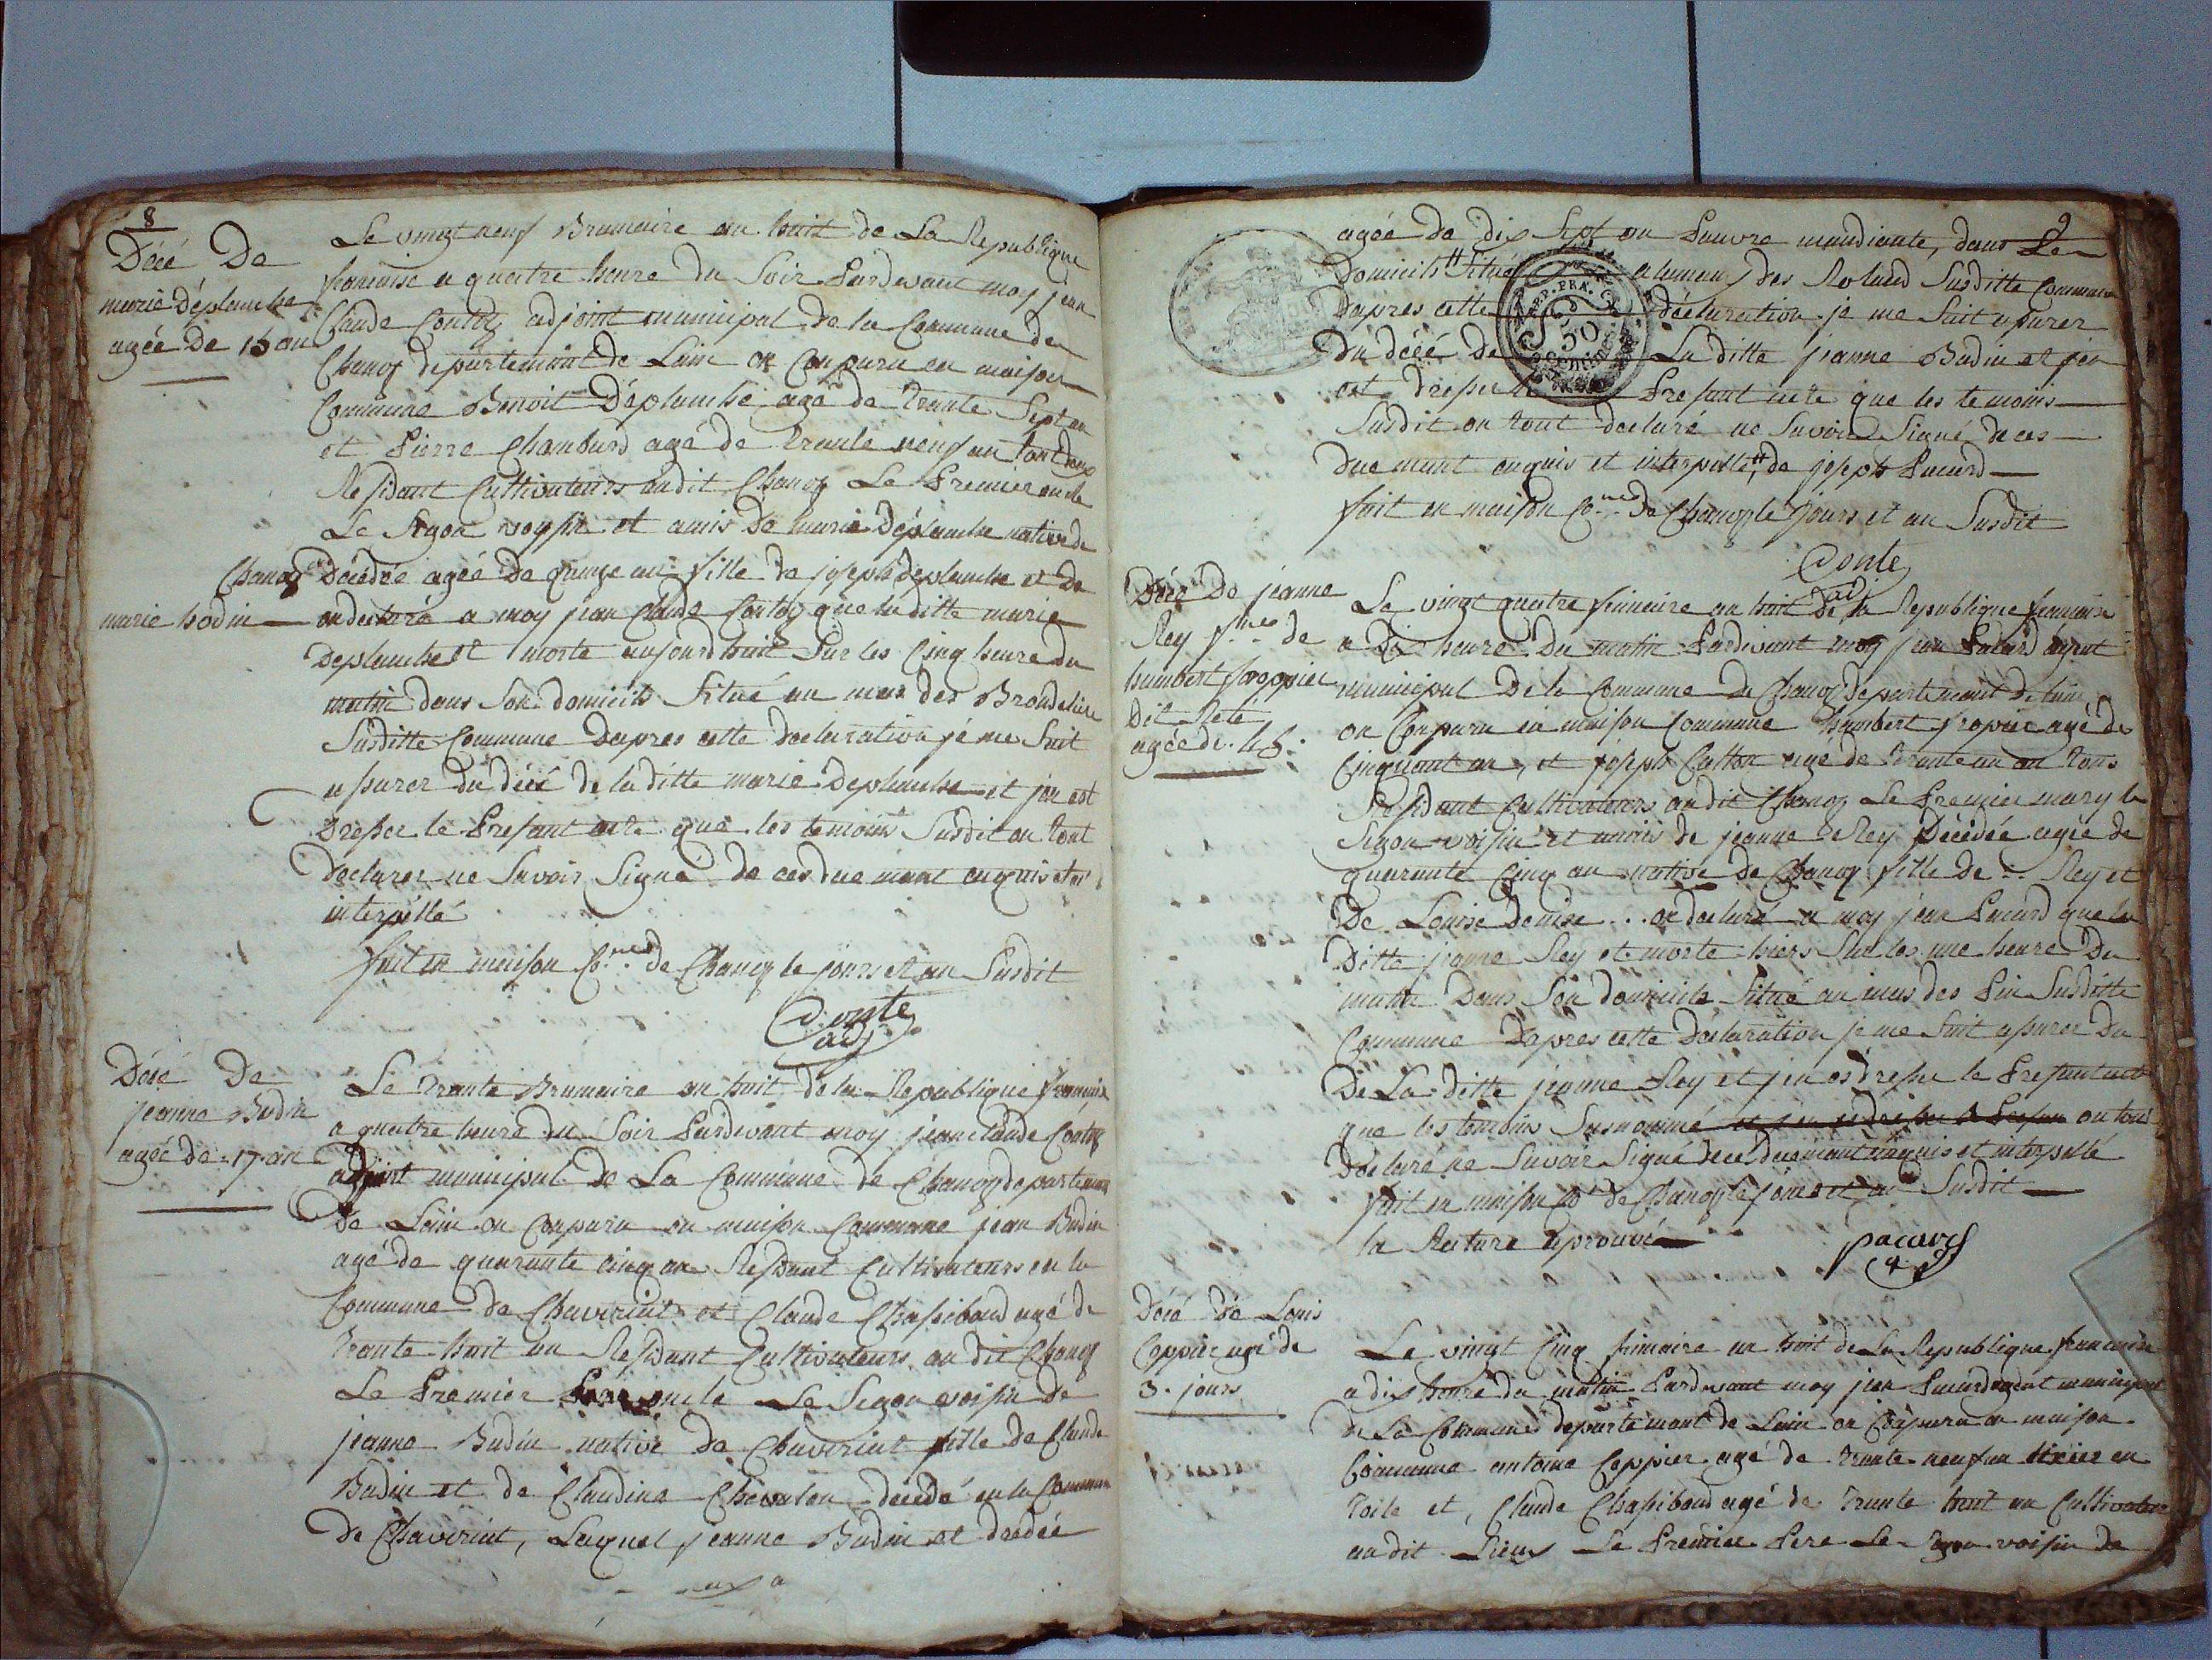 8
Décé De
marie déplanche
agée De 15 an
Le vingt neuf Brumaire an huit de La Republique
francaise a quatre heure du Soir Pardevant moy jean
Claude Contoz adjoint municipal de la Commune de
Chanoz departement de Lain on Conparu en maison
Commune Benoit Déplanche agé de trante Sept an
et Pierre Chambard agé de trante neuf an tout deux
Residant Cultivateurs audit Chanoz Le Premier oncle
Le Segon voysin et amis de marie déplanche native de
Chanoz Décédée agée de quinze an fille de joseph deplanche et de
marie bodin on declaré a moy jean Claude Contoz que la ditte marie
Deplanche et morte aujourdhuit Sur les Cinq heure du
matin dans Son domicile Situé au mas des Brondeliere
Susditte Commune Dapres cette declaration jé me Suit
asurer du décé de la ditte marie Deplanche et jen est
Dresser le Presant acte que les temoins Susdit on tout
Declarer ne Savoir Signé de ces due mant enquis et
interpéllé
fait en maison Co.ne de Chanoz le jours et an Susdit
Conte
adj
Décé De
jeanne Budin
agée de 17 an
Le trante Brumaire an huit de la Republique francaise
a quatre heure du Soir Pardevant moy jean claude Contoz
adjoint municipal de La Commune de Chanoz departement
de Lain on Conparu en maison Commune jean Budin
agé de quarante cinq an Residant Cultivateurs en la
Commune de Chaveriat et Claude Chasseboud agé de
trante huit an Residant Cultivateurs au dit Chanoz
Le Premier oncle Le Segon voisin de
jeanne Budin native de Chaveriat fille de Claude
Budin et de Claudine Chevalon decedé en la Commune
de Chaveriat, Laquel jeanne Budin et decedée
9
agée de dix Sept an Pauvre mandiante, dans Le
Domicile Situé a des Roland Susditte Commune
Dapres cette déclaration je me Suit asurer
REP. FRA.
50
Du décé De La ditte jeanne Budin et jen
est dresser le Presant acte que les temoins
Susdit on tout declaré ne Savoir Signé de ces
due mant enquis et interpellé, de joseph Pacard
fait en maison Co.ne de Chanoz le jours et an Susdit
Conte
adj
Décé De jeanne
Rey f.me de
humbert froppier
Dit Reté
agée de 45.
Le vingt quatre frimaire an huit de la Republique francaise
a Dix heure du matin Pardevant moy jean Pacard agent
municipal De la Commune de Chanoz departement de lain
on Conparu en maison Commune humbert fropier agé de
Cinquant an, et joseph Catton agé de trante un an tous
Residant Cultivateurs audit Chanoz Le Premier mary le
Segon voisin et amis de jeanne Rey Décédée agée de
quarante Cinq an native de Chanoz fille de .. Rey et
De Louise denise .. on declaré a moy jean Pacard que la
Ditte jeanne Rey et morte hiers Sur les une heure Du
matin Dans Son domicile Situé au mas des Pin Susditte
Commune Dapres cette Declaration je me Suit asurer Du
De La ditte jeanne Rey et jen es dresser le Presant acte
que les temoins Susnommé et jen es dresser le Presan on tous
Déclaré ne Savoir Signé de cé duemant enquis et interpellé
fait en maison Co.e de Chanoz le jours et an Susdit
la Rature aprouvée
pacard
Décé De Louis
Coppier agé de
3. jours
Le vingt Cinq frimaire an huit de La Republique francaise
a dix heure du matin Pardevant moy jean Pacard agent municipal
de La Commune departemant de Lain on Conparu en maison
Commune antoine Coppier agé de trante neuf an tixier en
toile et, Claude Chasseboud agé de trante huit an Cultivateur
audit Lieux Le Premier Pere Le Segon voisin de